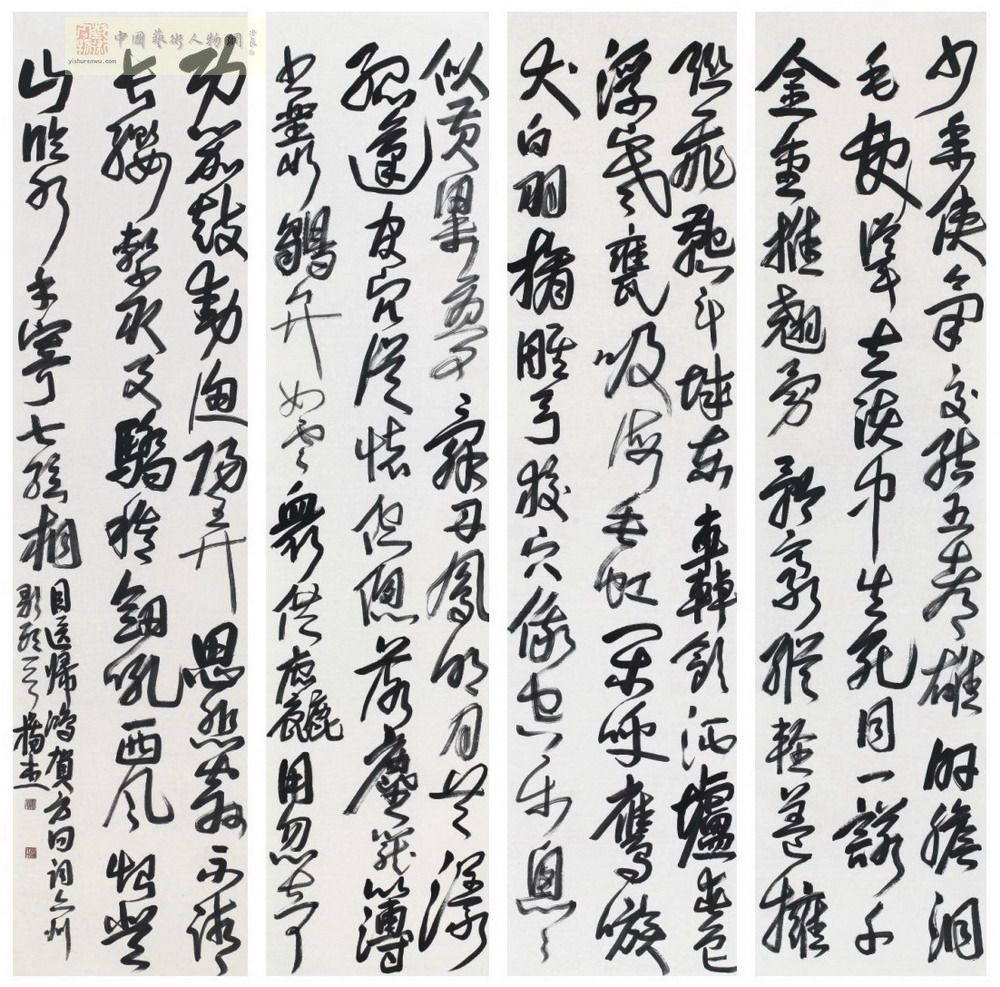 少年俠氣交結五都雄肝膽洞
毛髮聳立談中生死同一諾千
金重推翹勇矜豪縱輕蓋擁
聯飛鞚斗城東轟飲酒壚春色
浮寒甕吸海垂虹閑呼鷹嗾
犬白羽摘雕弓狡穴俄空樂匆匆
似黃粱夢辭丹鳳明月共漾
孤蓬官冗從懷倥傯落塵籠簿
書叢鶡弁如雲眾供麤用忽奇
功笳鼓動漁陽弄思悲翁不請
長纓繫取天驕種劍吼西風恨登
山臨水手寄七弦桐
目送歸鴻賀方回詞六州
歌頭一首楊杰
中國藝術人物網
yishurenwu.com